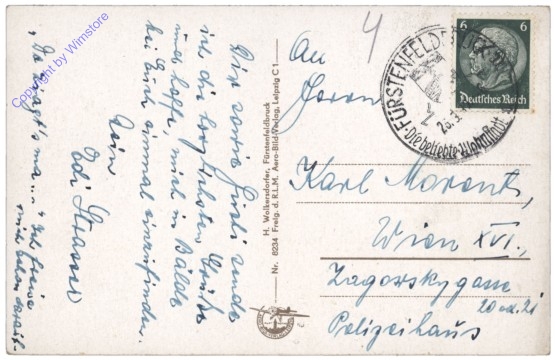 Copyright by Winstore
Dir sowie Gusti und
ich die herzlichsten Grüße
und hoffe mich in Bälde
bei Euch einmal einzufinden.
Dein
Edi Strasser
"Da sragt's ma..." Ich freue
mich schon darauf.
H. Wolkersdorfer, Fürstenfeldbruck
Nr. 8234 Freig. d. R.L.M. Aero-Bild-Verlag, Leipzig C 1
4
An
Herrn
Karl Marent,
Wien XVI.,
Zagorskygasse
20 od. 21
Polizeihaus
6 6
Deutsches Reich
FÜRSTENFELDBRUCK
Die beliebte Wohnstadt